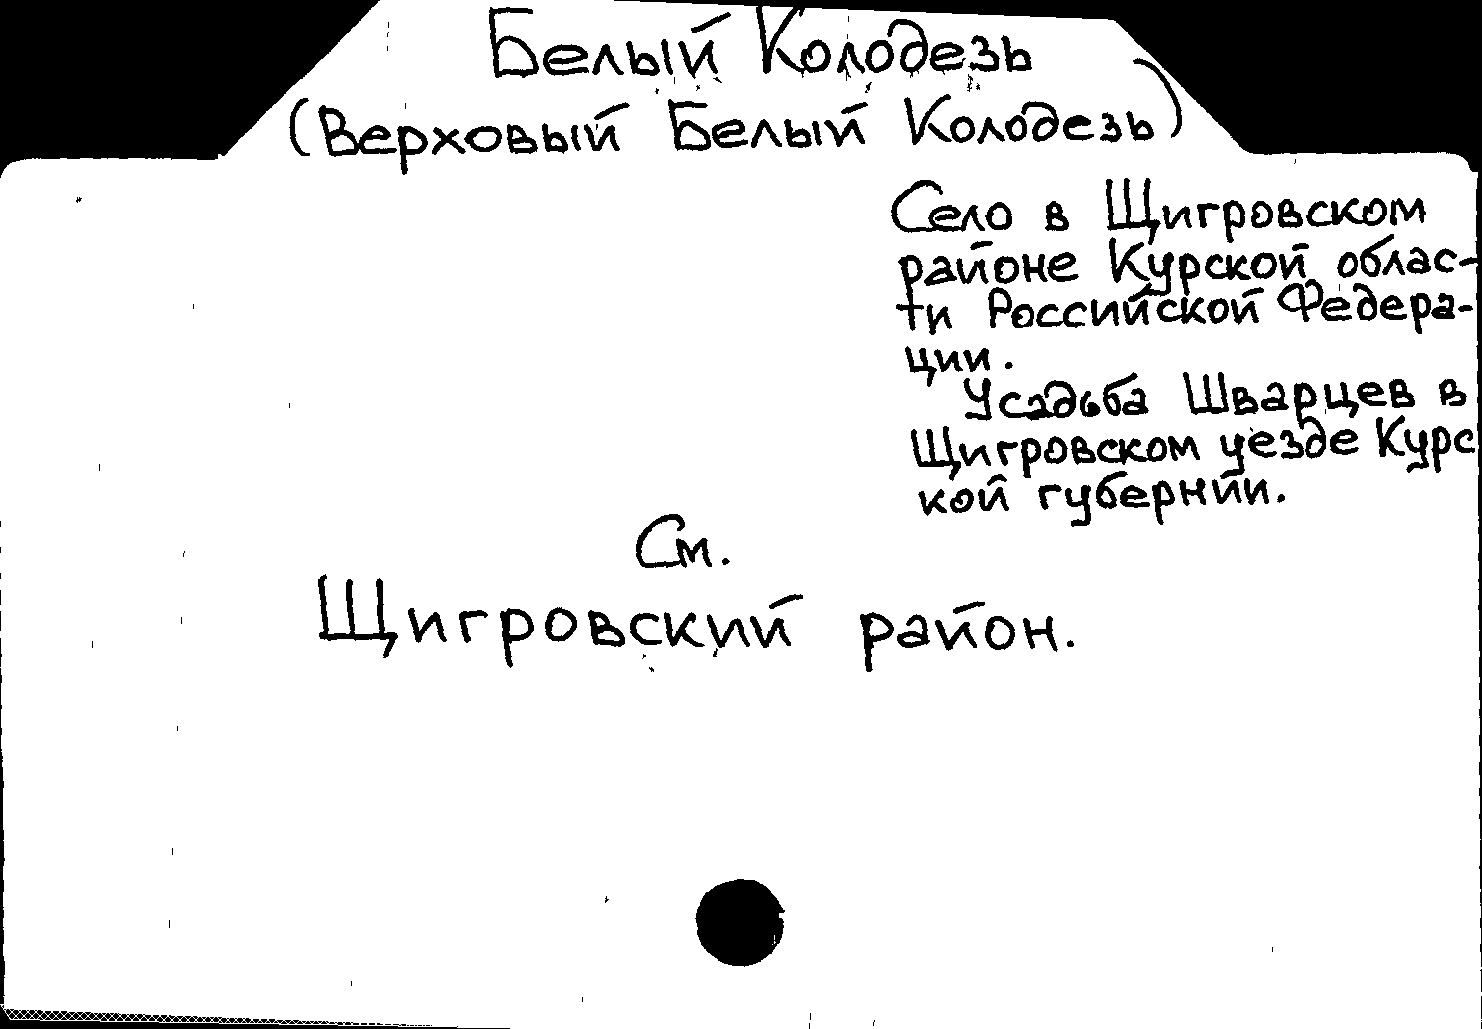 Белый Колодезь
(Верховый Белый Колодезь)
Село в Щигровском
районе Курской облас-
ти Российской Федера-
ции.
Усадьба Шварцев в
Щигровском уезде Курс
кой губернии.
См.
Щигровский район.